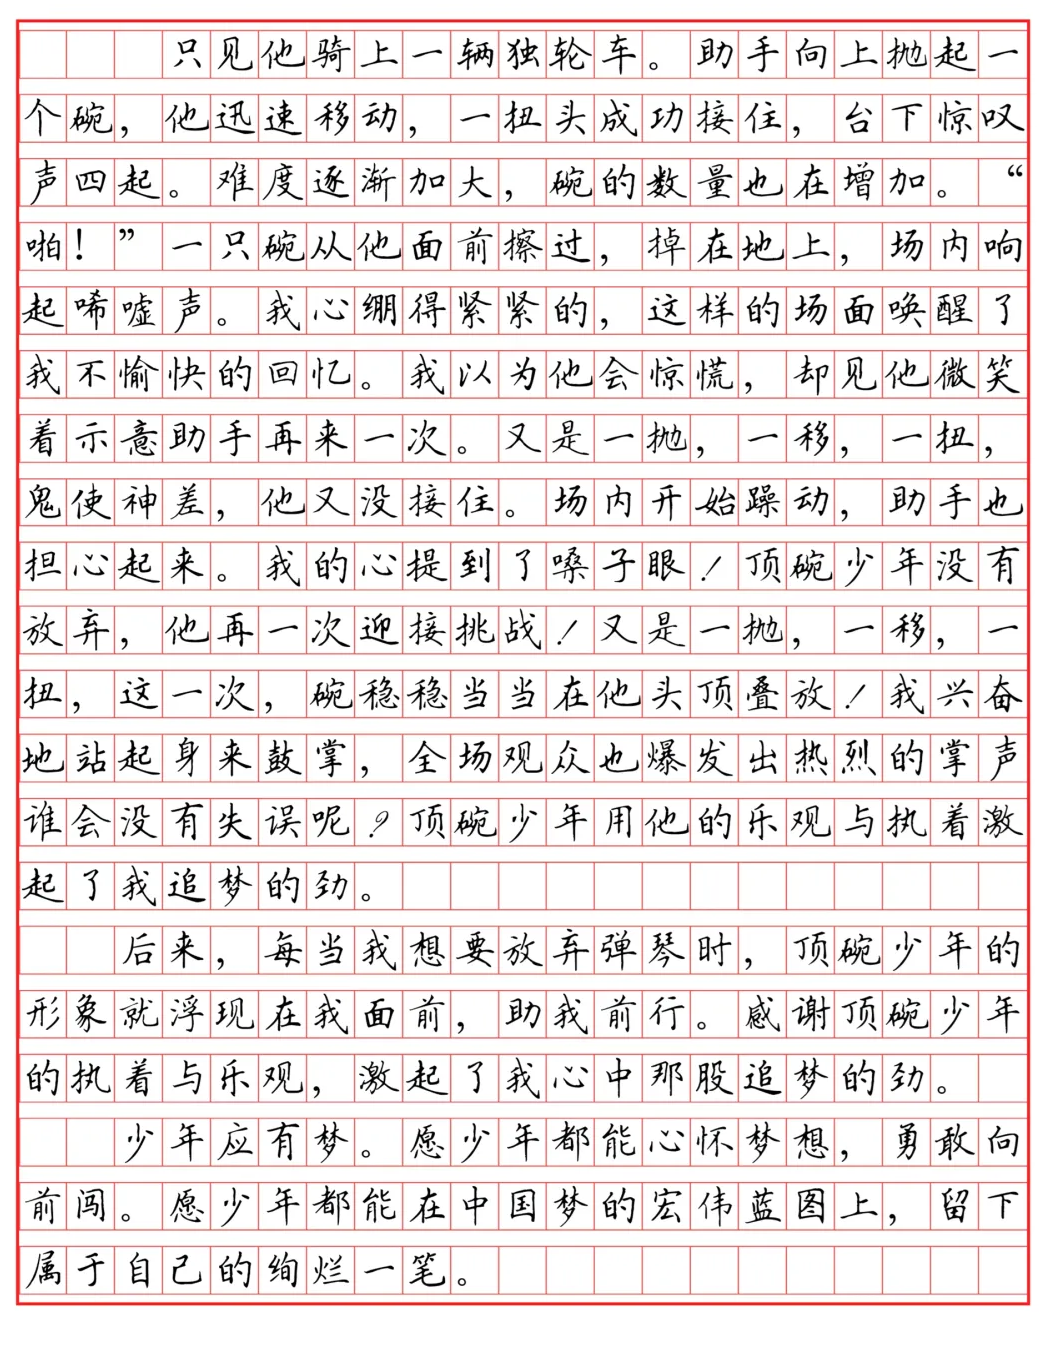 只见他骑上一辆独轮车。助手向上抛起一
个碗，他迅速移动，一扭头成功接住，台下惊叹
声四起。难度逐渐加大，碗的数量也在增加。“
啪！”一只碗从他面前擦过，掉在地上，场内响
起唏嘘声。我心绷得紧紧的，这样的场面唤醒了
我不愉快的回忆。我以为他会惊慌，却见他微笑
着示意助手再来一次。又是一抛，一移，一扭，
鬼使神差，他又没接住。场内开始躁动，助手也
担心起来。我的心提到了嗓子眼！顶碗少年没有
放弃，他再一次迎接挑战！又是一抛，一移，一
扭，这一次，碗稳稳当当在他头顶叠放！我兴奋
地站起身来鼓掌，全场观众也爆发出热烈的掌声
谁会没有失误呢？顶碗少年用他的乐观与执着激
起了我追梦的劲。
后来，每当我想要放弃弹琴时，顶碗少年的
形象就浮现在我面前，助我前行。感谢顶碗少年
的执着与乐观，激起了我心中那股追梦的劲。
少年应有梦。愿少年都能心怀梦想，勇敢向
前闯。愿少年都能在中国梦的宏伟蓝图上，留下
属于自己的绚烂一笔。